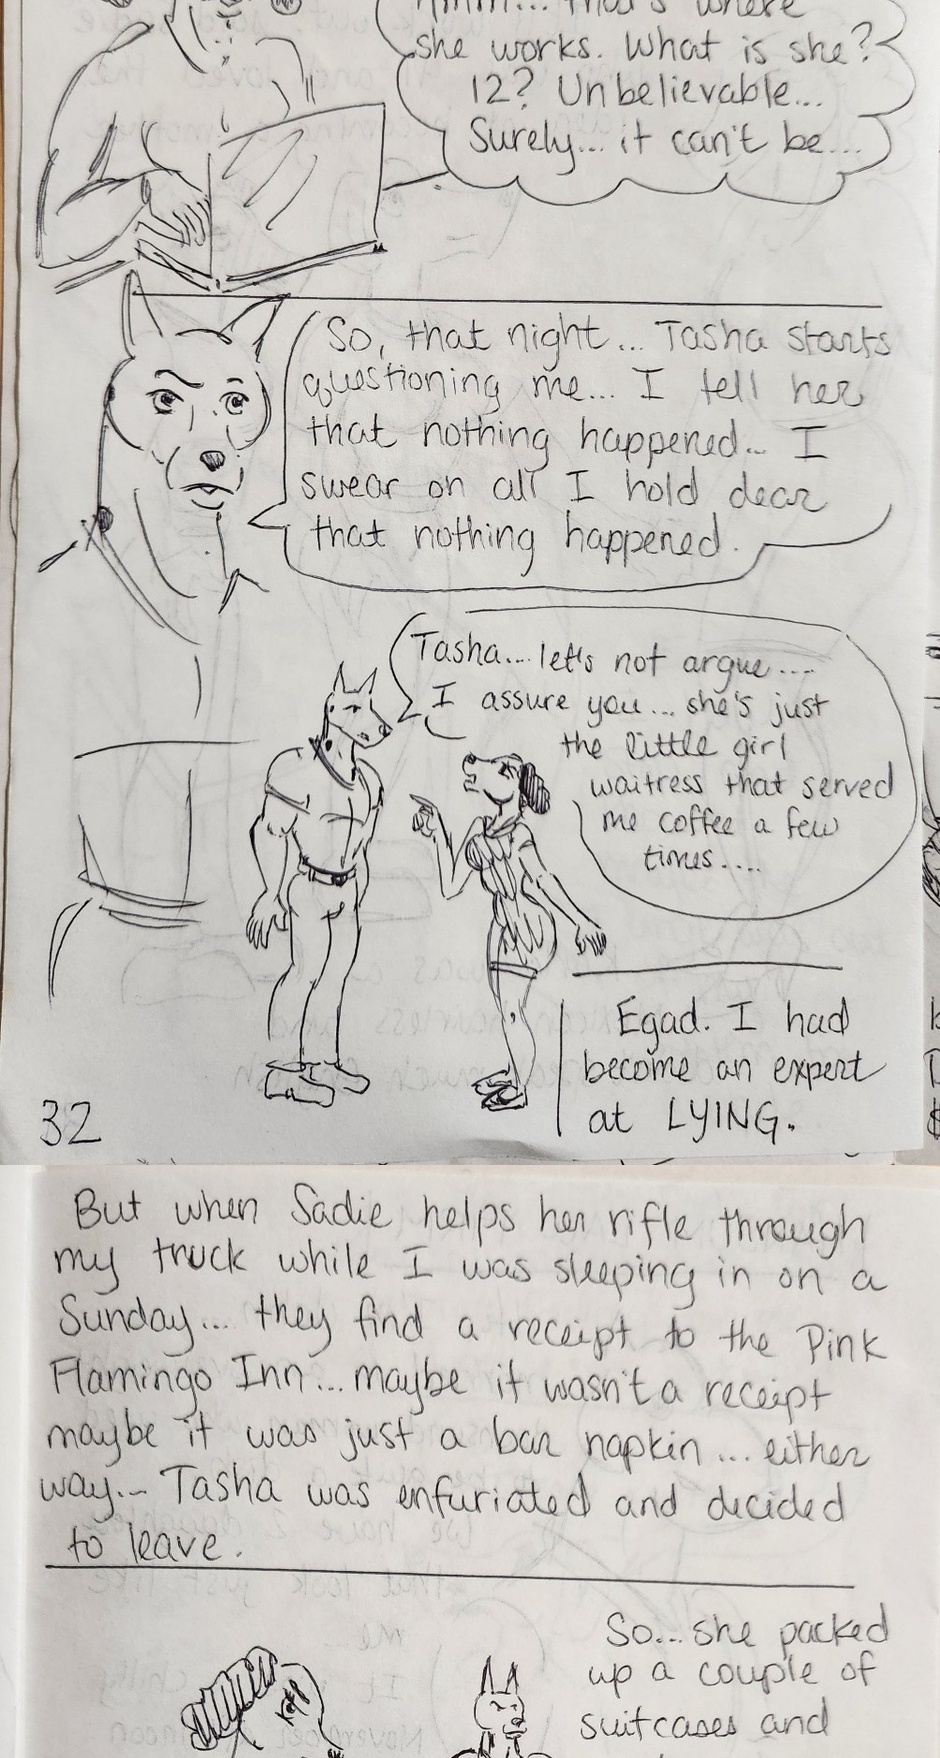 Hmm... that's where
she works. What is she?
12? Unbelievable...
Surely... it can't be...
So, that night... Tasha starts
questioning me... I tell her
that nothing happened... I
swear on all I hold dear
that nothing happened.
Tasha... let's not argue....
I assure you... she's just
the little girl
waitress that served
me coffee a few
times....
Egad. I had
become an expert
at LYING.
32
But when Sadie helps her rifle through
my truck while I was sleeping in on a
Sunday... they find a receipt to the Pink
Flamingo Inn... maybe it wasn't a receipt
maybe it was just a bar napkin... either
way... Tasha was enfuriated and decided
to leave.
So... she packed
up a couple of
suitcases and